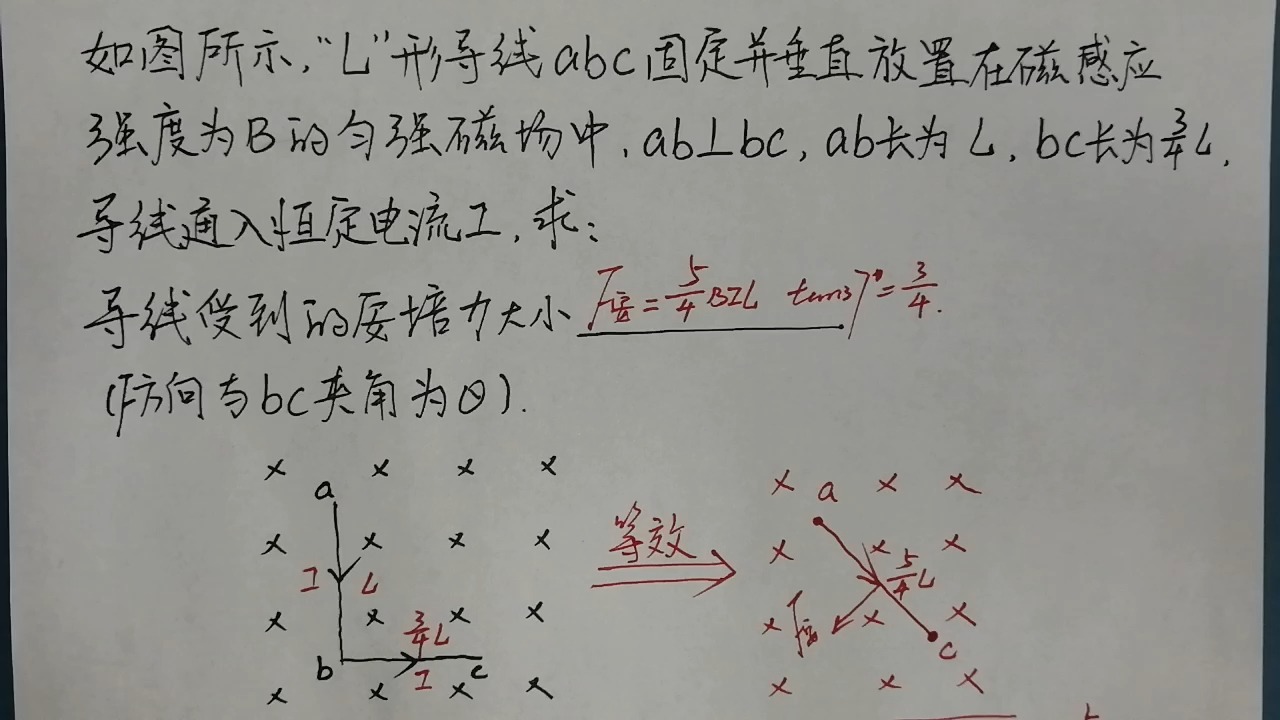 如图所示,“L”形导线abc固定并垂直放置在磁感应
强度为B的匀强磁场中,ab⊥bc,ab长为L,bc长为3/4L,
导线通入恒定电流I,求:
导线受到的安培力大小 F安=5/4BIL tan37°=3/4.
(方向与bc夹角为θ).
× × × ×
a
× × × ×
I L
× × × ×
3/4L
b I c
× × × ×
等效
× a × ×
× × ×
5/4L
× F安 × ×
c
× × ×